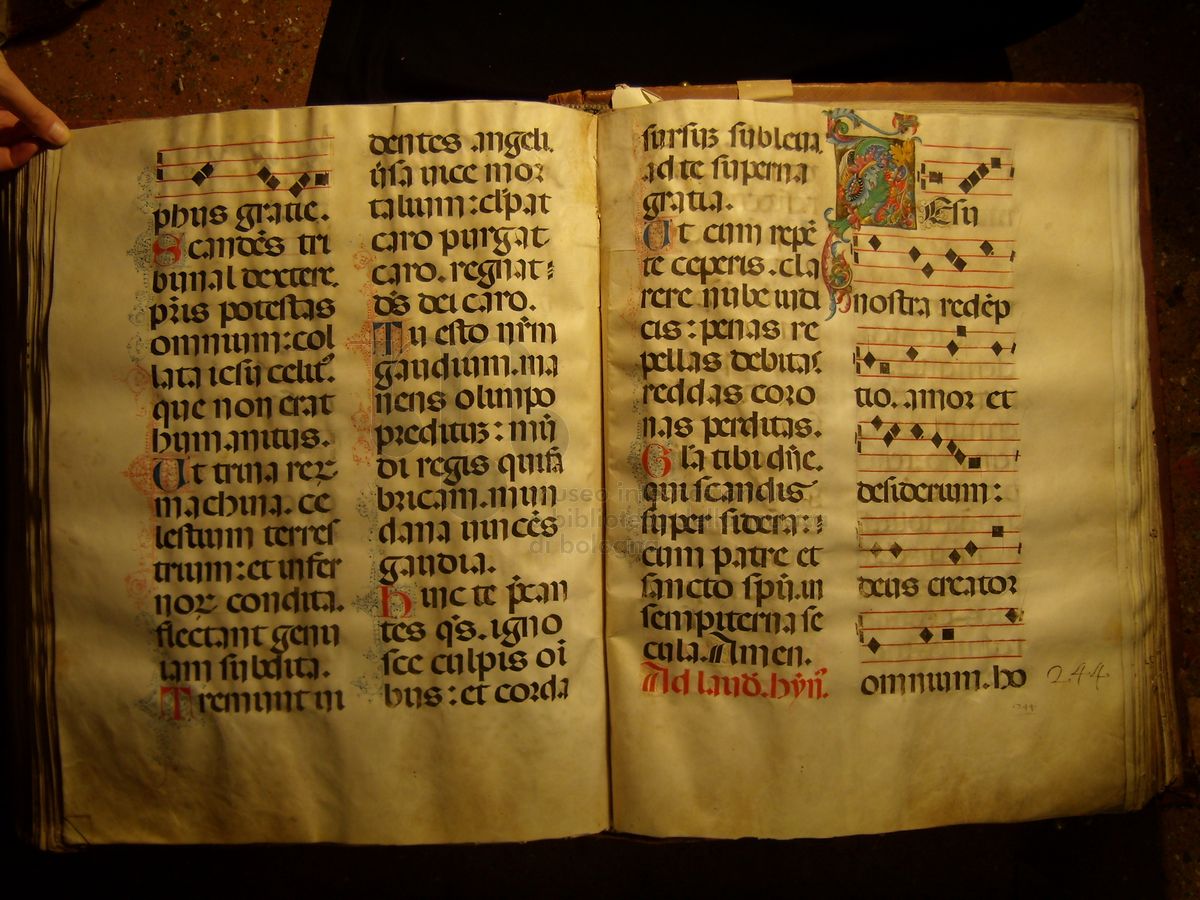 phus gratie.
Scandēs tri
bunal dextere.
pris potestas
omnium: col
lata iesu celit᷒.
que non erat
humanitus.
Ut trina reꝝ
machina. ce
lestium terres
trium: et infer
noꝝ condita.
flectant genu
iam subdita.
Tremunt vi
dentes angeli.
versa vice mor
talium: clpat
caro purgat
caro. regnat:
ds dei caro.
Tu esto nrm
gaudium. ma
nens olimpo
preditus: mū
di regis qui fa
bricam. mun
dana vincēs
gaudia.
Hinc te pcan
tes qs. igno
sce culpis oī
bus: et corda
sursuꝫ subleua.
ad te superna
gratia.
Ut cum repē
te ceperis. cla
rere nube iudi
cis: penas re
pellas debitas.
reddas coro
nas perditas.
Gla tibi dñe.
qui scandis
super sidera:
cum patre et
sancto spū. in
sempiterna se
cula. Amen.
Ad laud. hyñ.
Esu
nostra redēp
tio. amor et
desiderium:
deus creator
omnium. ho
244
244
museo inte
bibliote
di bologna